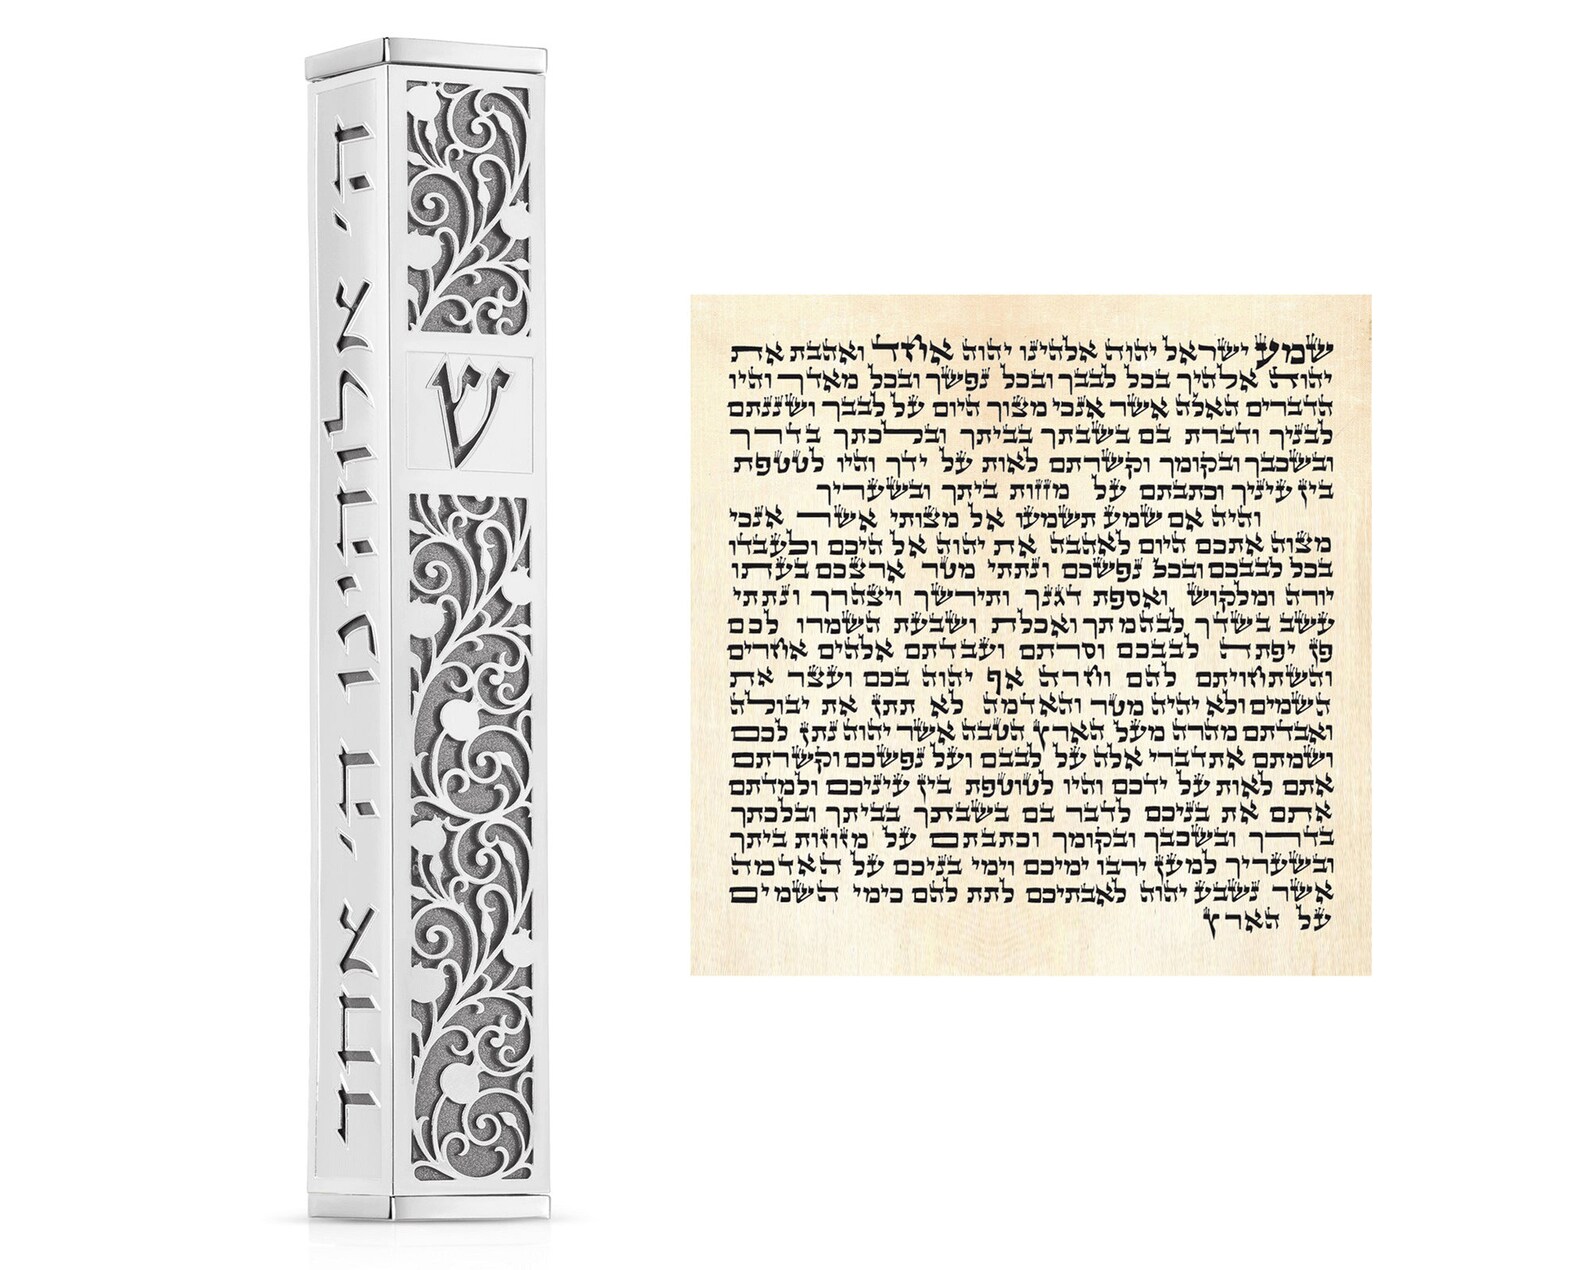 ה' אלוהינו ה' אחד
ש
שמע ישראל יהוה אלהינו יהוה אחד ואהבת את
יהוה אלהיך בכל לבבך ובכל נפשך ובכל מאדך והיו
הדברים האלה אשר אנכי מצוך היום על לבבך ושננתם
לבניך ודברת בם בשבתך בביתך ובלכתך בדרך
ובשכבך ובקומך וקשרתם לאות על ידך והיו לטטפת
בין עיניך וכתבתם על מזזות ביתך ובשעריך
והיה אם שמע תשמעו אל מצותי אשר אנכי
מצוה אתכם היום לאהבה את יהוה אלהיכם ולעבדו
בכל לבבכם ובכל נפשכם ונתתי מטר ארצכם בעתו
יורה ומלקוש ואספת דגנך ותירשך ויצהרך ונתתי
עשב בשדך לבהמתך ואכלת ושבעת השמרו לכם
פן יפתה לבבכם וסרתם ועבדתם אלהים אחרים
והשתחויתם להם וחרה אף יהוה בכם ועצר את
השמים ולא יהיה מטר והאדמה לא תתן את יבולה
ואבדתם מהרה מעל הארץ הטבה אשר יהוה נתן לכם
ושמתם את דברי אלה על לבבכם ועל נפשכם וקשרתם
אתם לאות על ידכם והיו לטוטפת בין עיניכם ולמדתם
אתם את בניכם לדבר בם בשבתך בביתך ובלכתך
בדרך ובשכבך ובקומך וכתבתם על מזוזות ביתך
ובשעריך למען ירבו ימיכם וימי בניכם על האדמה
אשר נשבע יהוה לאבתיכם לתת להם כימי השמים
על הארץ